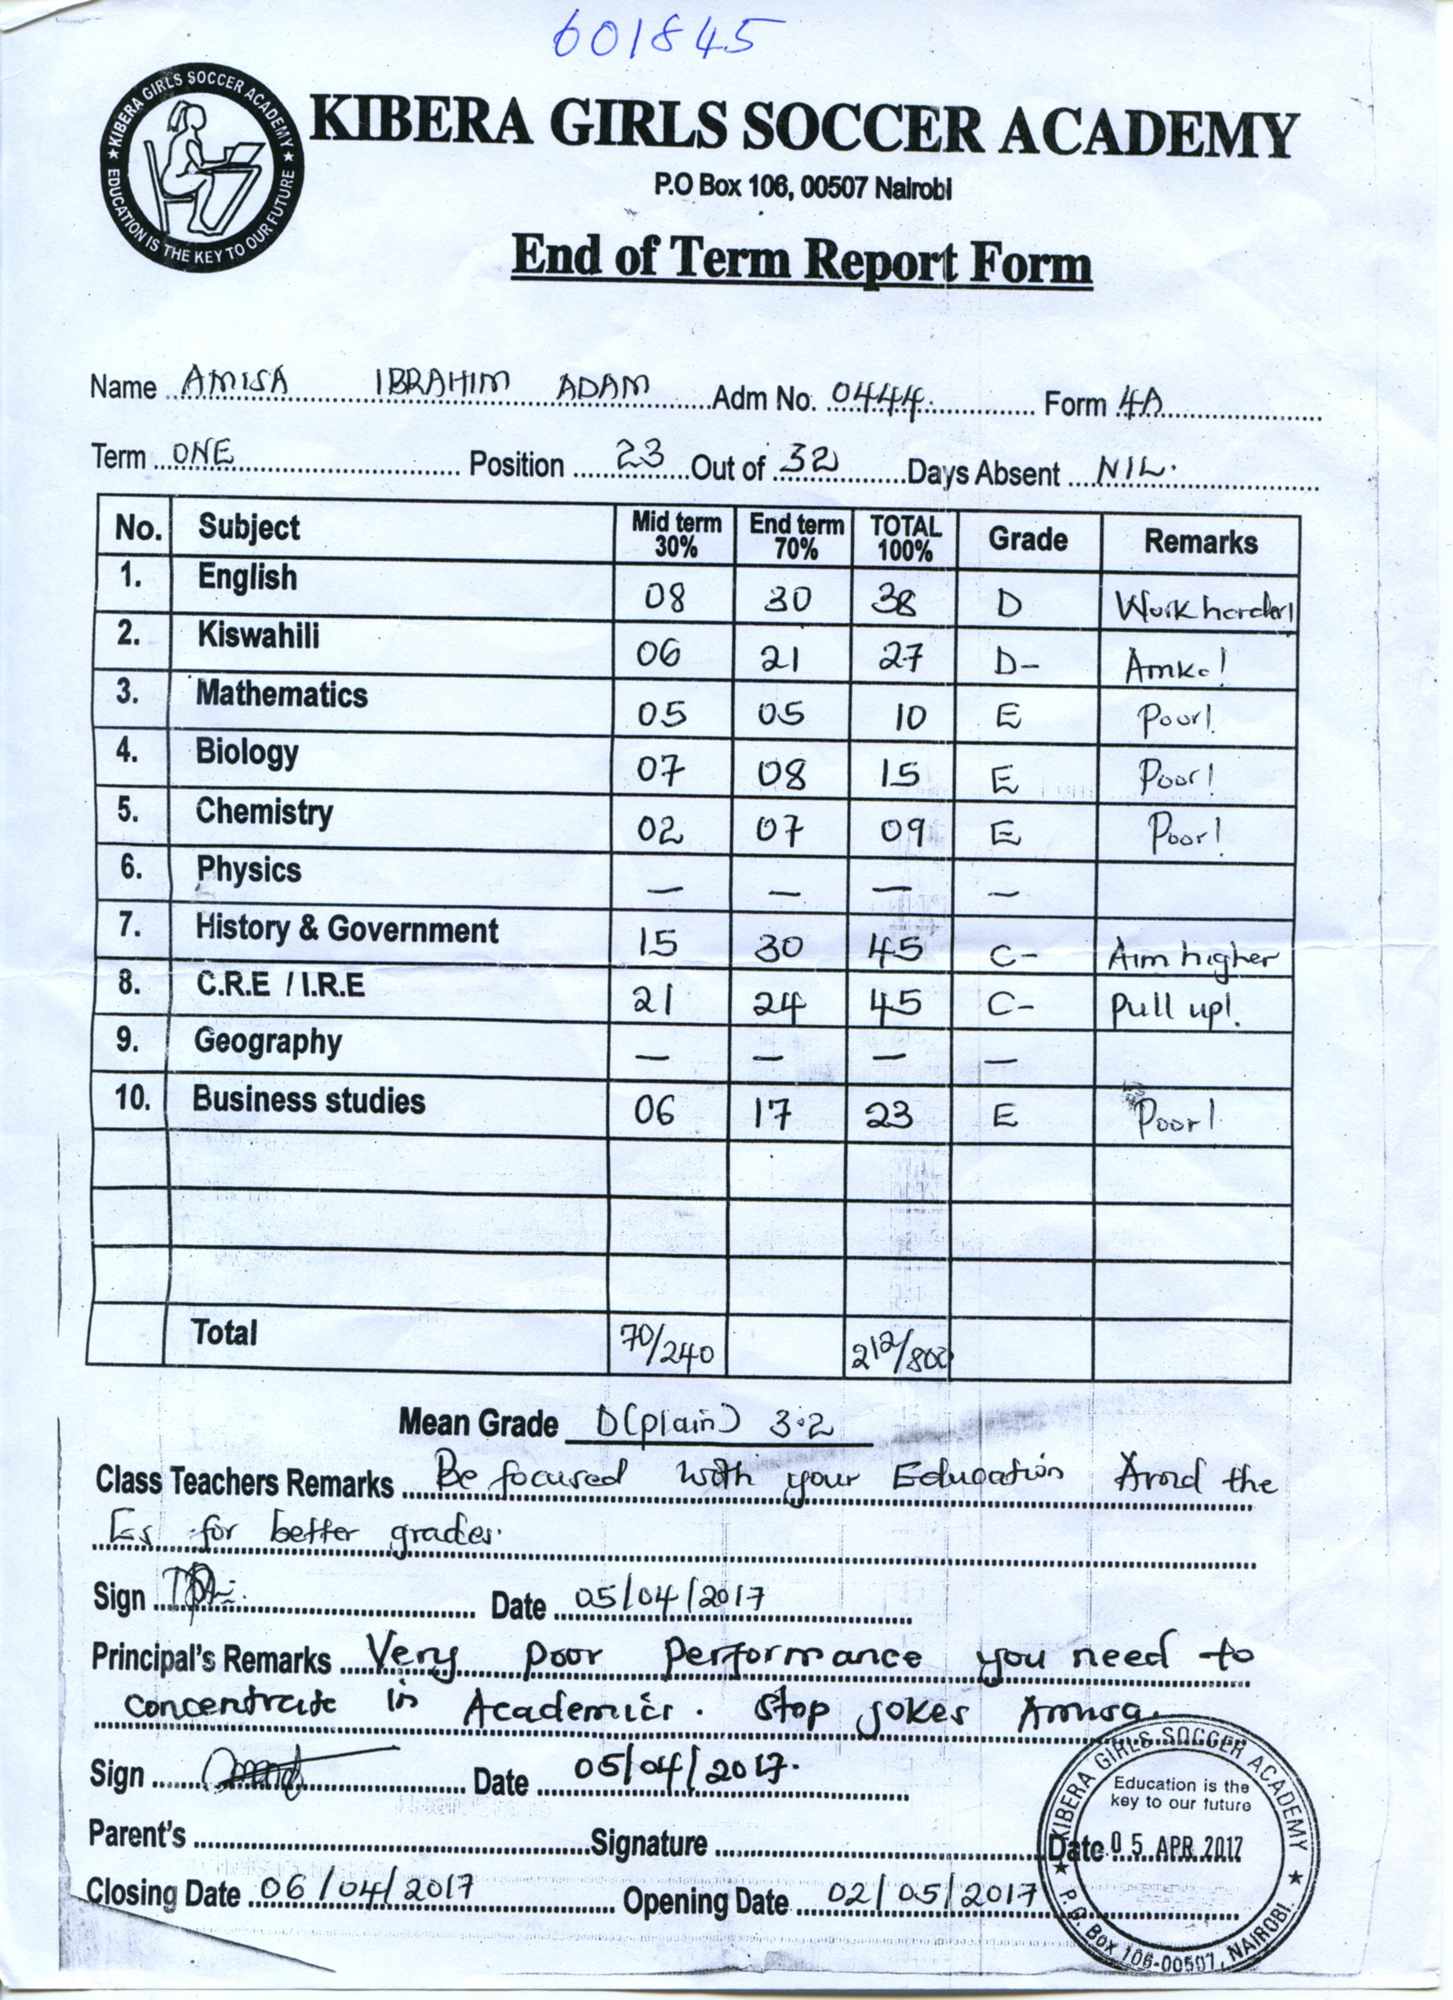 601845
★ KIBERA GIRLS SOCCER ACADEMY ★
EDUCATION IS THE KEY TO OUR FUTURE
KIBERA GIRLS SOCCER ACADEMY
P.O Box 106, 00507 Nairobi
End of Term Report Form
Name AMISA IBRAHIM ADAM Adm No. 0444 Form 4A
Term ONE Position 23 Out of 32 Days Absent NIL.
No. Subject Mid term 30% End term 70% TOTAL 100% Grade Remarks
1. English 08 30 38 D Work harder!
2. Kiswahili 06 21 27 D- Amka!
3. Mathematics 05 05 10 E Poor!
4. Biology 07 08 15 E Poor!
5. Chemistry 02 07 09 E Poor!
6. Physics — — — —
7. History & Government 15 30 45 C- Aim higher
8. C.R.E / I.R.E 21 24 45 C- Pull up!
9. Geography — — — —
10. Business studies 06 17 23 E Poor!
Total 70/240 212/800
Mean Grade D(plain) 3.2
Class Teachers Remarks Be focused with your Education Avoid the
Es for better grades.
Sign Date 05/04/2017
Principal's Remarks Very poor performance you need to
concentrate in Academics. Stop jokes Amisa.
Sign Date 05/04/2017.
Parent's Signature Date
Closing Date 06/04/2017 Opening Date 02/05/2017
★ KIBERA GIRLS SOCCER ACADEMY ★
Education is the
key to our future
05 APR 2017
P.O. Box 106-00507, NAIROBI.